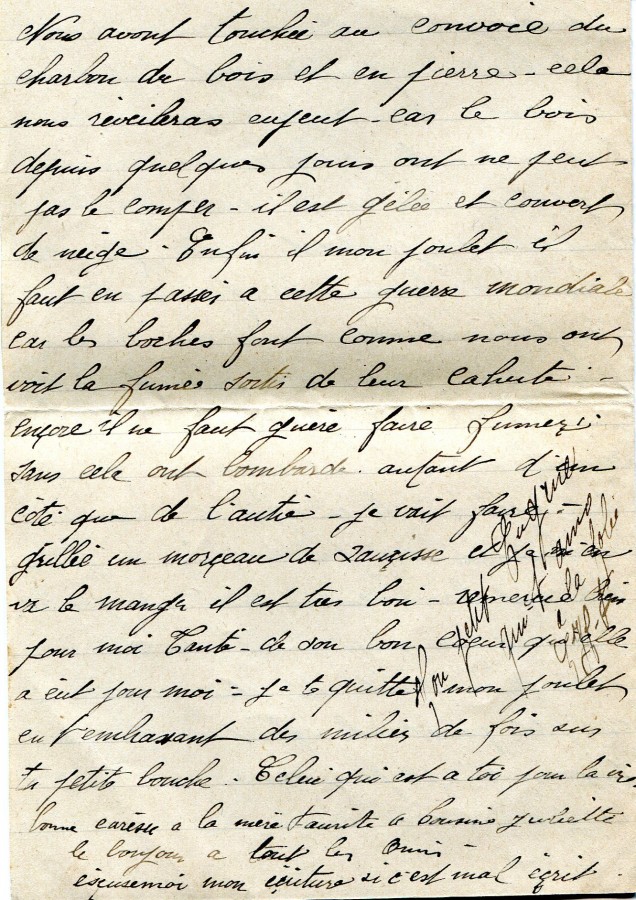 Nous avont touchée au convoie du
charbon de bois et en pierre - cela
nous réveileras car le bois
depuis quelques jours ont ne peut
pas le comper - il est gélée et couvert
de neige - Enfin il mon poulet il
faut en passer a cette guerre mondiale
car les boches font comme nous ont
voit la fumée sortis de leur cahute -
encore il ne faut guère faire fumer
sans cela ont bombarde autant d'un
côté que de l'autre - je vait faire
grillée un morçeau de sauçisse et je m'en
le manger il est très bon - remercie bien
pour moi Tante - de son bon coeur qu'elle
a eut pour moi = je te quitte mon poulet
en t'embrassant des milier de fois sur
ta petite bouche - Celui qui est a toi pour la vie
bonne caresse a la mère Cousine Juliette
le bonjour a tout les amis -
esçusemoi mon éçriture si c'est mal éçrit.
Ton petit
qui t'aime
a la folie